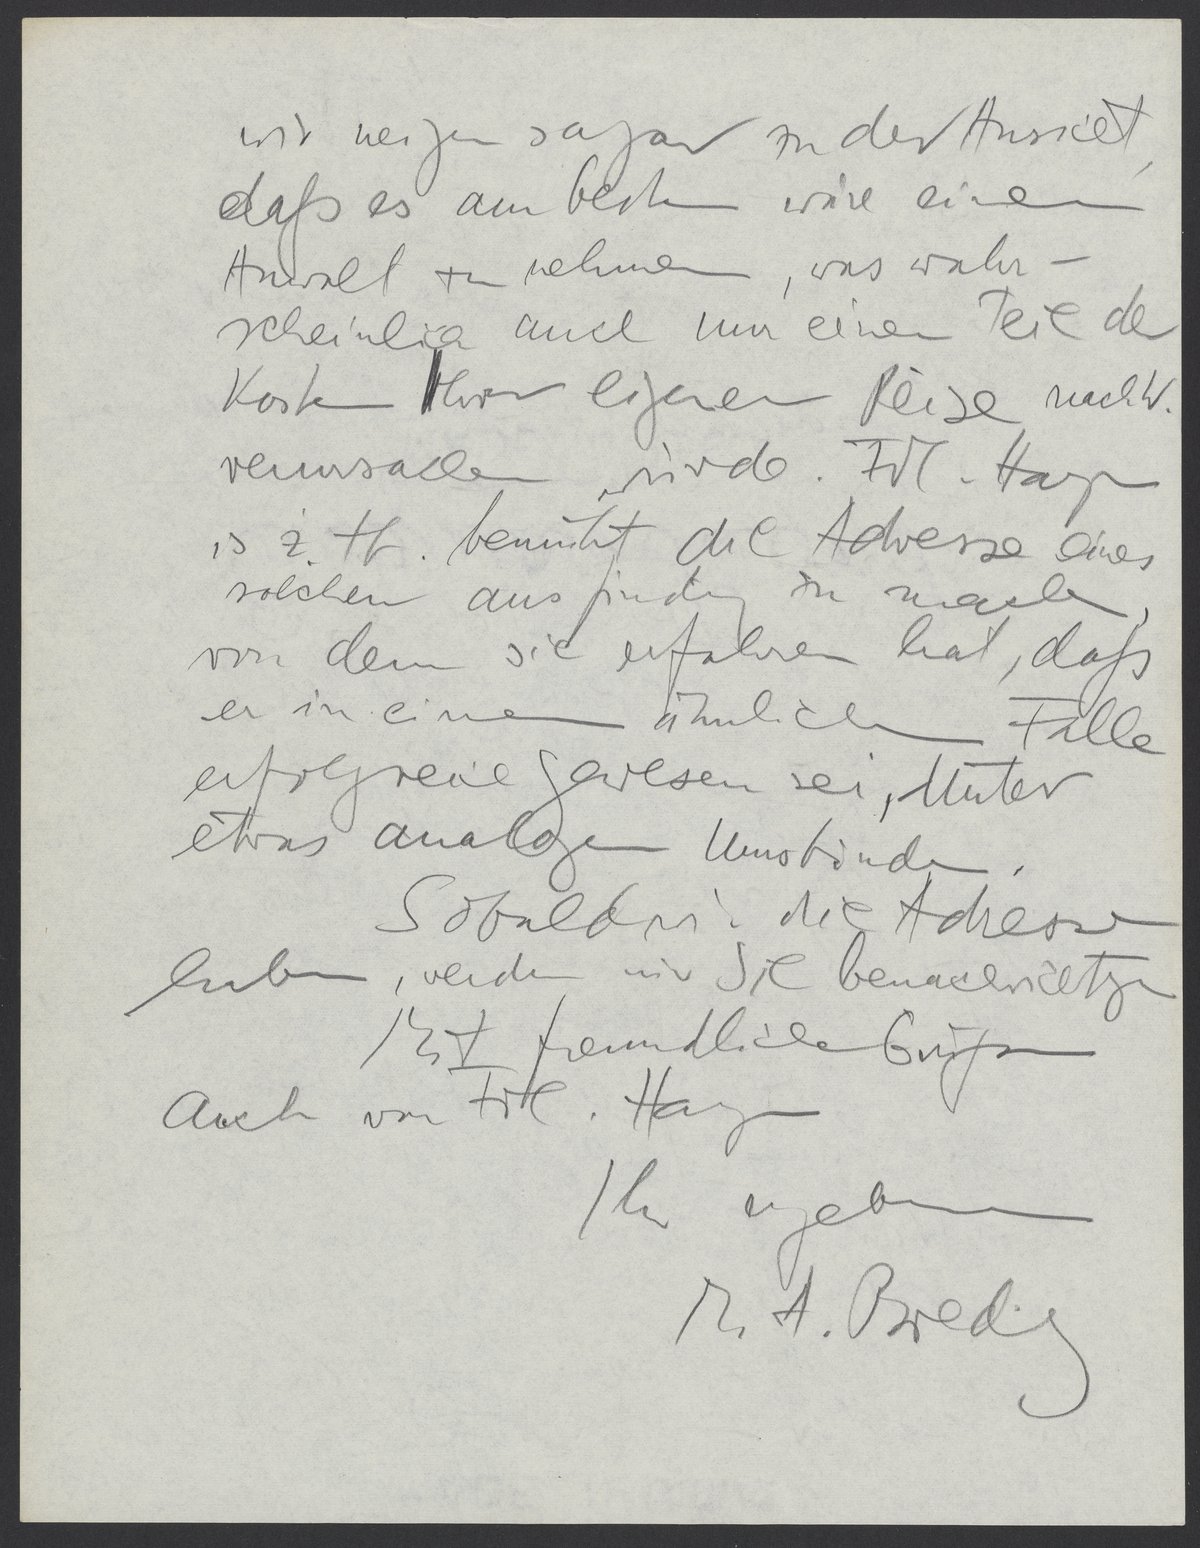 wir neigen sogar zu der Ansicht,
daß es am besten wäre einen
Anwalt zu nehmen, was wahr-
scheinlich auch nur einen Teil der
Kosten Ihrer eigenen Reise nach W.
verursachen würde. Frl. Hagen
is z. Zt. bemüht die Adresse eines
solchen ausfindig zu machen,
von dem sie erfahren hat, daß
er in einem ähnlichen Falle
erfolgreich gewesen sei, unter
etwas analogen Umständen.
Sobald wir die Adresse
haben, werden wir Sie benachrichtigen
Mit freundlichen Grüßen
Auch von Frl. Hagen
Ihr ergebener
M. A. Bredig